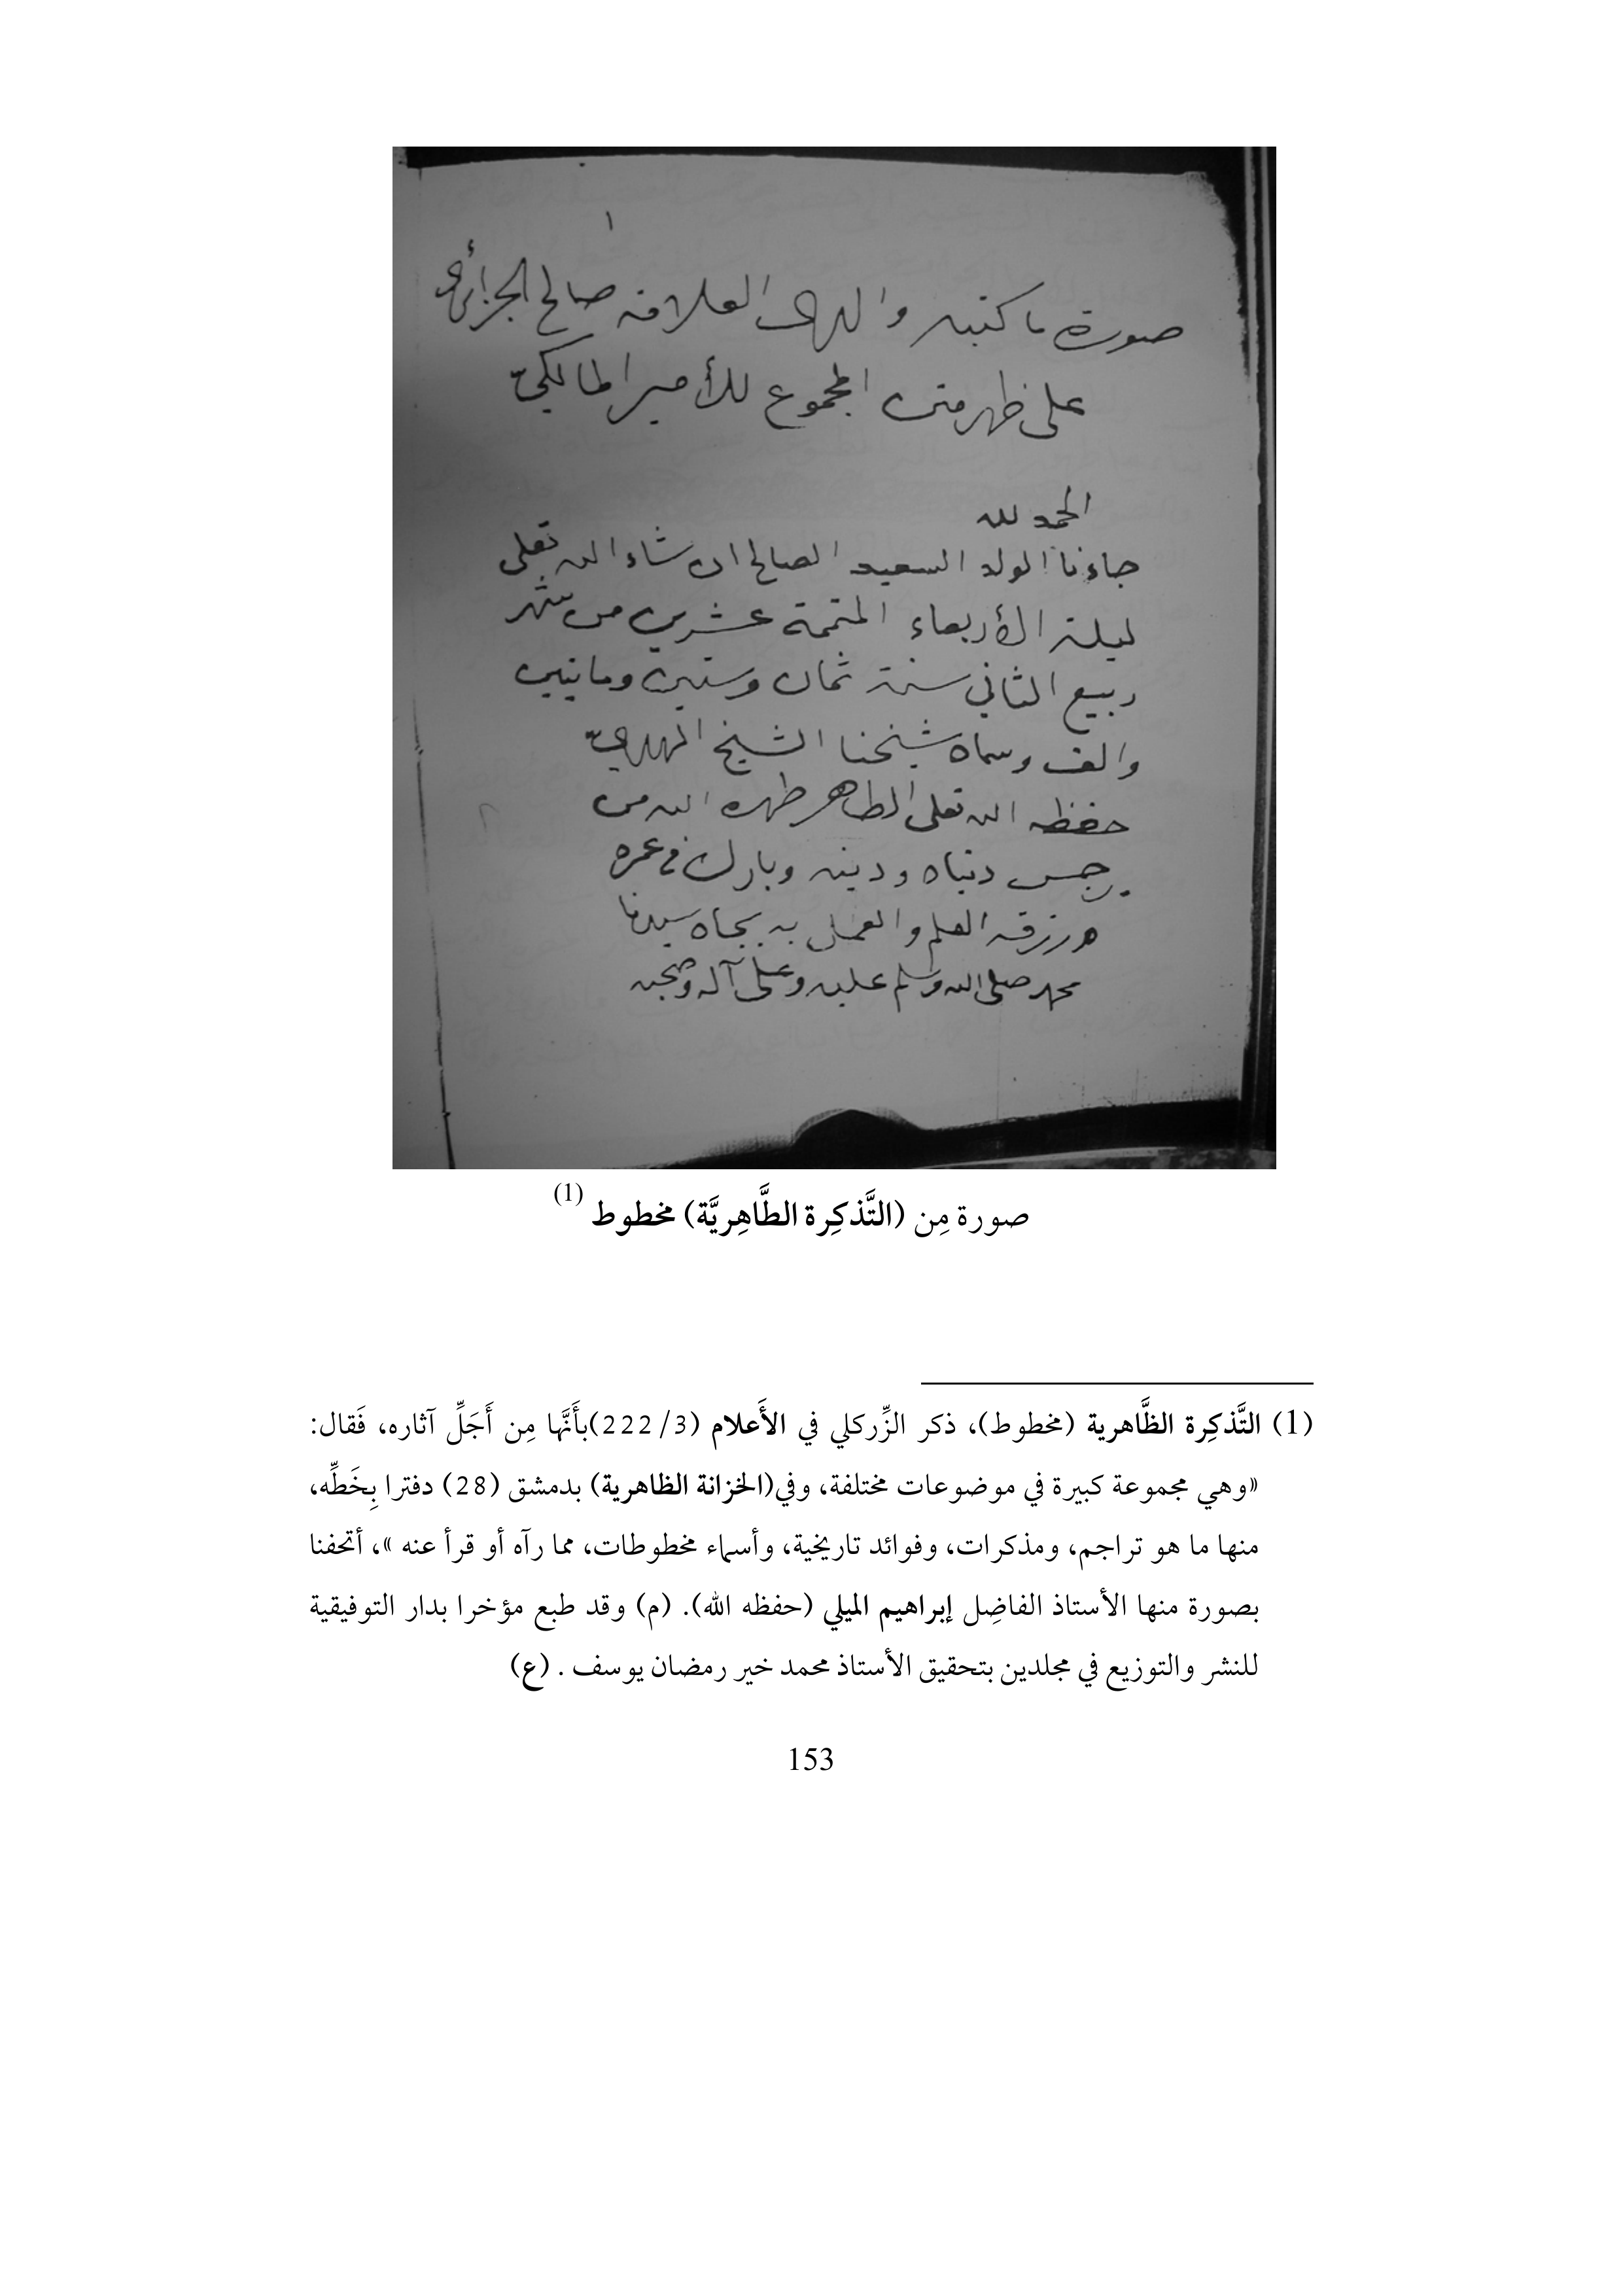 ١
صورة ما كتبه والدي العلامة صالح الجزائري
على ظهر متن المجموع للأمير المالكيّ
الحمد لله
جاءنا الولد السعيد الصالح ان شاء الله تعلى
ليلة الأربعاء المتممة عشرين من شهر
ربيع الثاني سنة ثمان وستين ومايتين
والف وسماه شيخنا الشيخ المهديّ
حفظه الله تعلى الطاهر طهره الله من
رجس دنياه ودينه وبارك في عمره
ورزقه العلم والعمل به بجاه سيدنا
محمد صلى الله وسلم عليه وعلى آله وصحبه
صورة مِن (التَّذكِرة الطَّاهِريَّة) مخطوط (1)
(1) التَّذكِرة الظَّاهرية (مخطوط)، ذكر الزِّركلي في الأَعلام (3/222)بأَنَّها مِن أَجَلِّ آثاره، فَقال:
«وهي مجموعة كبيرة في موضوعات مختلفة، وفي(الخزانة الظاهرية) بدمشق (28) دفترا بِخَطِّه،
منها ما هو تراجم، ومذكرات، وفوائد تاريخية، وأسماء مخطوطات، مما رآه أو قرأ عنه »، أتحفنا
بصورة منها الأستاذ الفاضِل إبراهيم الميلي (حفظه الله). (م) وقد طبع مؤخرا بدار التوفيقية
للنشر والتوزيع في مجلدين بتحقيق الأستاذ محمد خير رمضان يوسف . (ع)
153